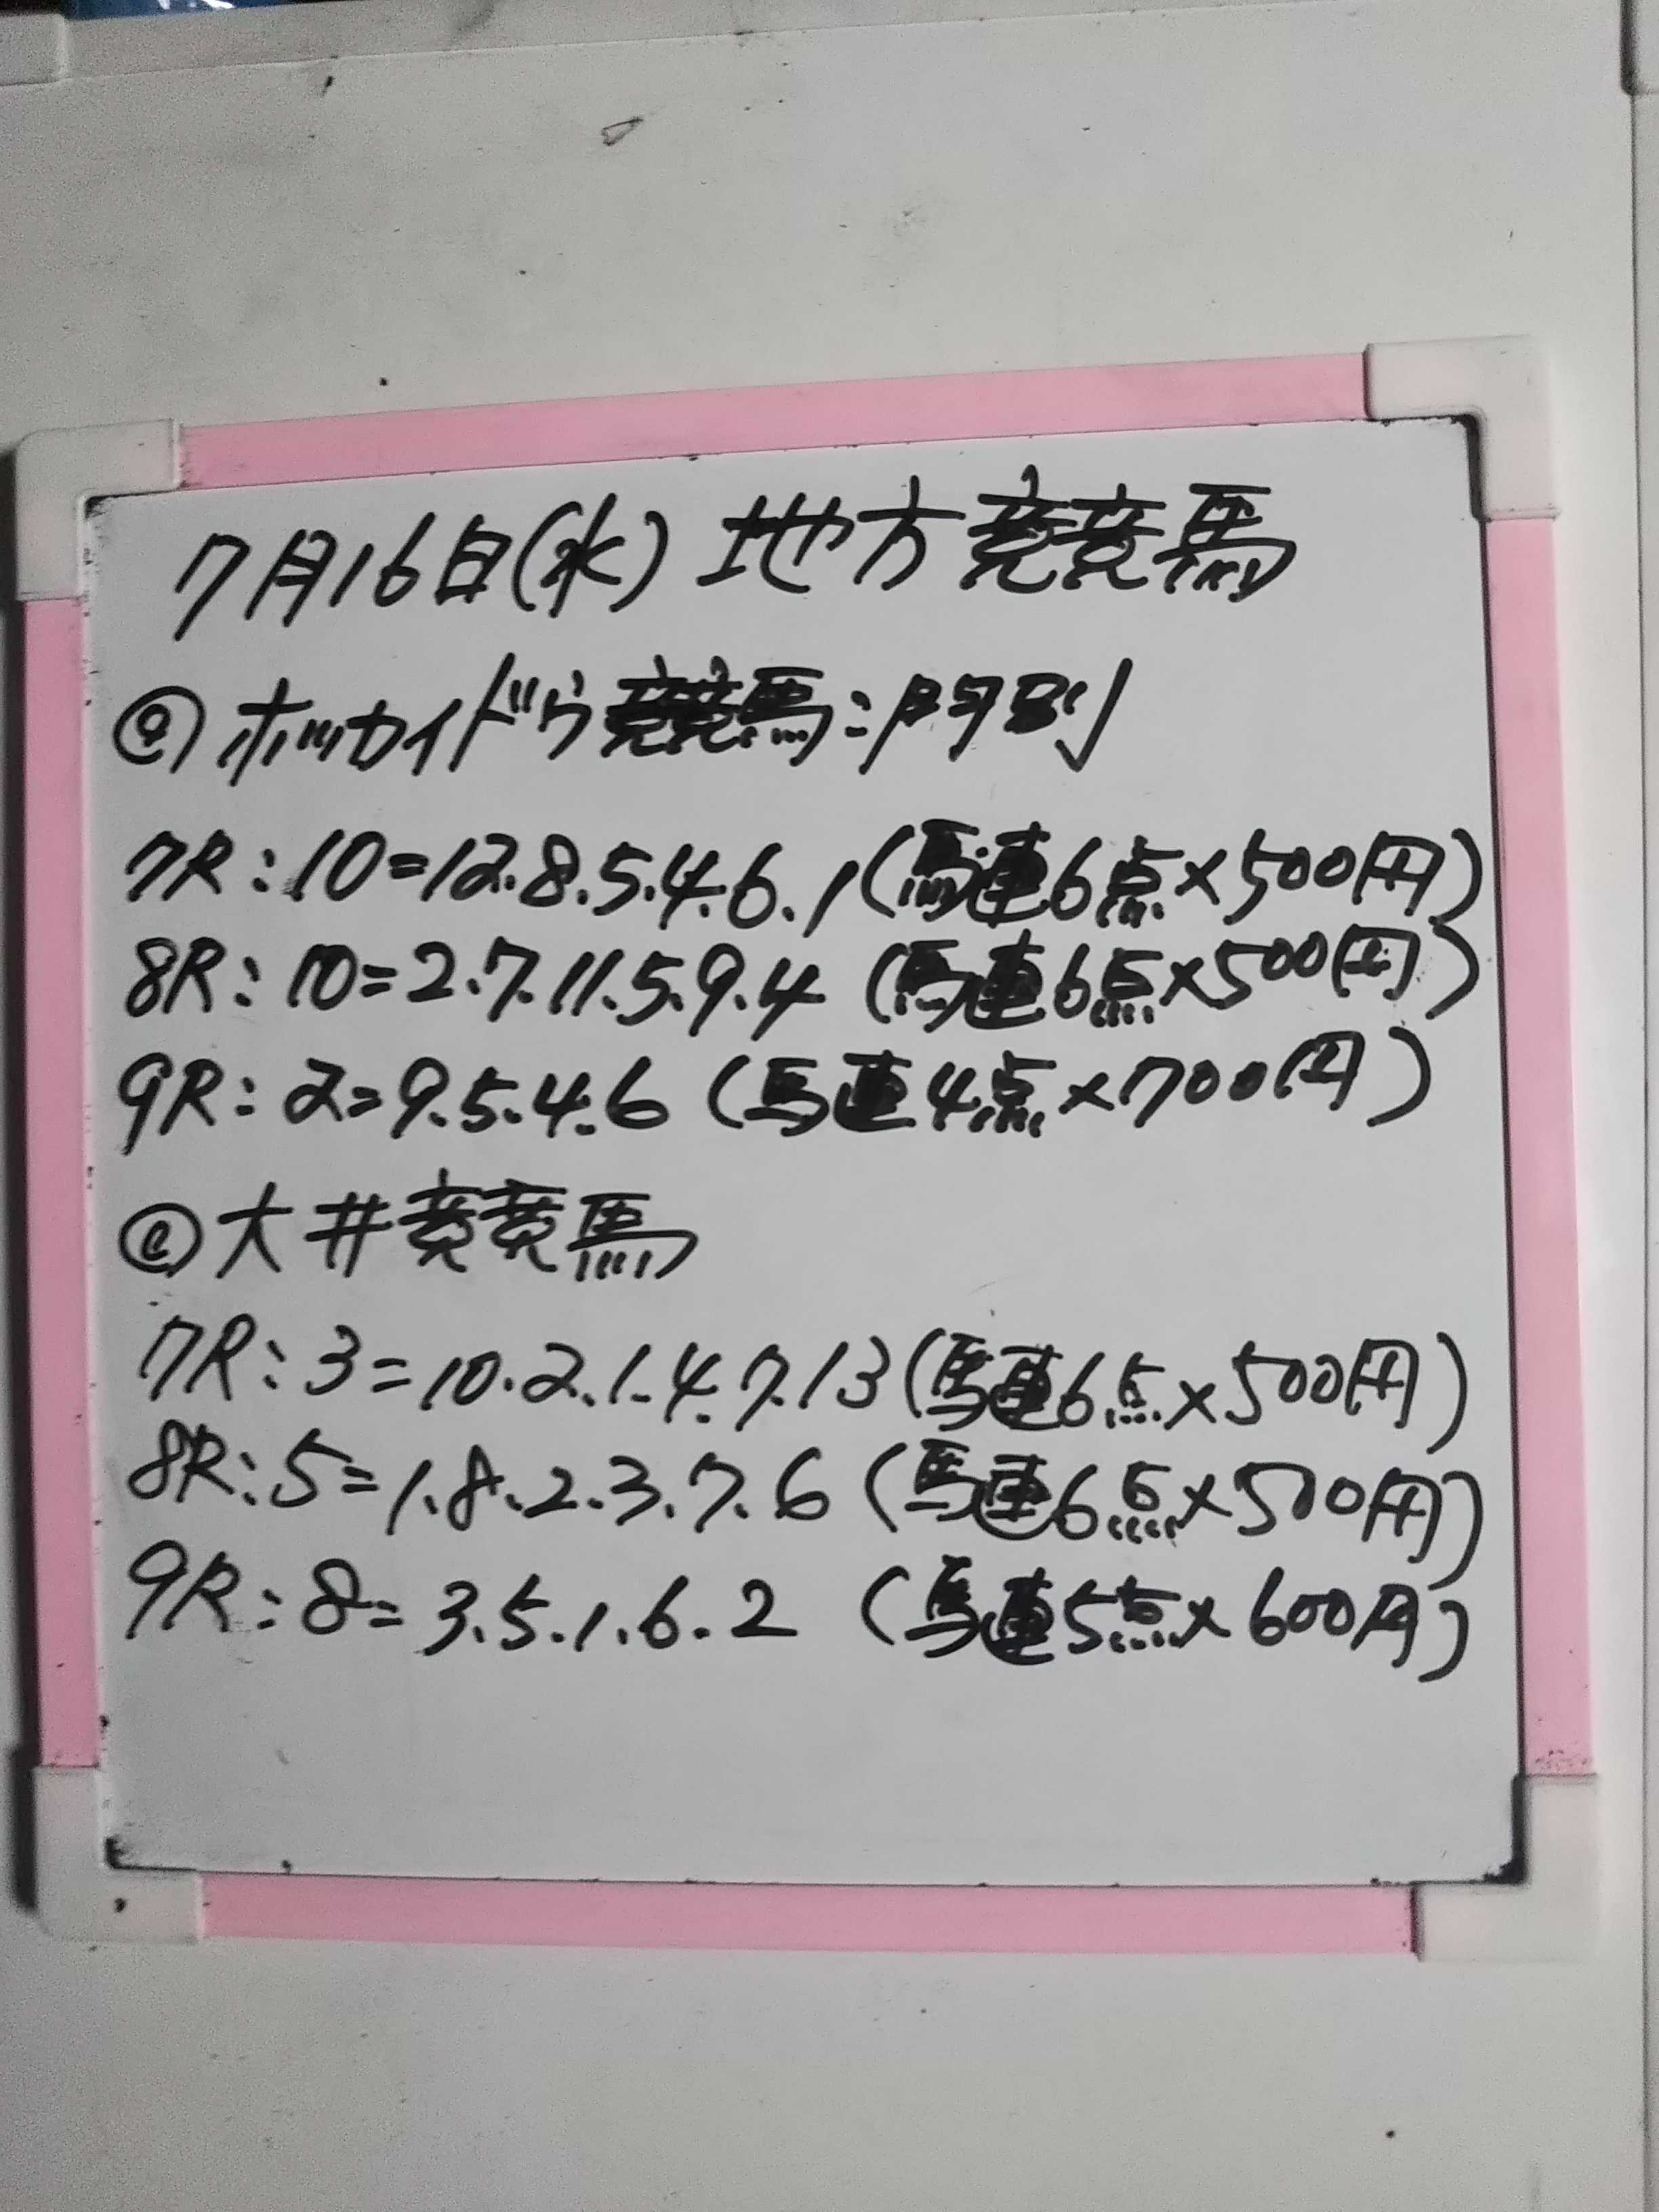 7月16日(水) 地方競馬
◎ホッカイドウ競馬:門別
7R:10=12.8.5.4.6.1(馬連6点×500円)
8R:10=2.7.11.5.9.4 (馬連6点×500円)
9R:2=9.5.4.6 (馬連4点×700円)
◎大井競馬
7R:3=10.2.1.4.7.13(馬連6点×500円)
8R:5=1.8.2.3.7.6 (馬連6点×500円)
9R:8=3.5.1.6.2 (馬連5点×600円)